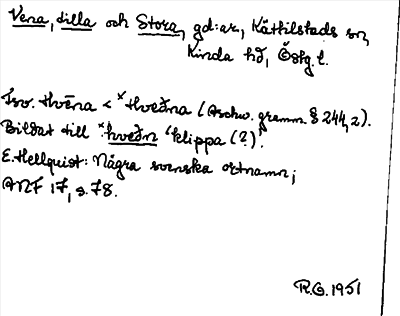 Vena, Lilla och Stora, gd:ar, Kättilstads sn,
Kinda hd, Östg. l.
Fsv. Hvēna < *Hveðna (Aschw. gramm. § 244, 2).
Bildat till *hveðn 'klippa (?)'.
E. Hellquist: Några svenska ortnamn;
ANF 17, s. 78.
R.G. 1951